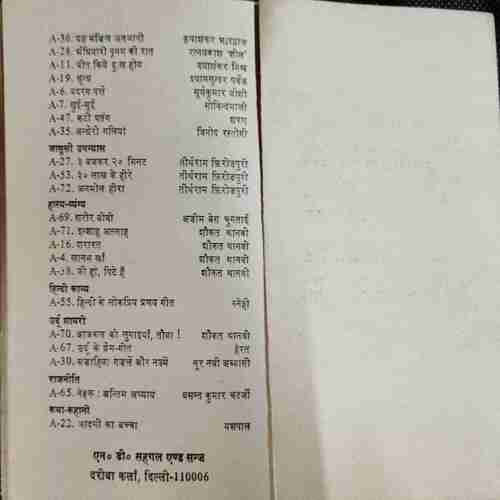 A-36. यह मंज़िल अनजानी दयाशंकर भारद्वाज
A-28. अँधियारी पूनम की रात रामप्रकाश 'शील'
A-11. प्रीत किये दुःख होय दयाशंकर मिश्र
A-19. शून्य श्यामसुन्दर पर्वेज़
A-6. बदरंग पत्ते सूर्यकुमार जोशी
A-7. छुई-मुई गोविन्दमाली
A-47. कटी पतंग शरण
A-35. अन्धेरी गलियां विनोद रस्तोगी
जासूसी उपन्यास
A-27. ३ बजकर २० मिनट तीर्थराम फ़िरोज़पुरी
A-53. ३० लाख के हीरे तीर्थराम फ़िरोज़पुरी
A-72. अनमोल हीरा तीर्थराम फ़िरोज़पुरी
हास्य-व्यंग्य
A-69. शरीर बीवी अज़ीम बेग चुग़ताई
A-71. इन्शाह अल्लाह शौकत थानवी
A-16. शरारत शौकत थानवी
A-4. खानम खाँ शौकत थानवी
A-58. जी हां, पिटे हैं शौकत थानवी
हिन्दी काव्य
A-55. हिन्दी के लोकप्रिय प्रणय गीत स्नेही
उर्दू शायरी
A-70. आजकल की लुगाइयाँ, तौबा ! शौकत थानवी
A-67. उर्दू के प्रेम-गीत हैरत
A-30. मज़ाहिया गज़लें और नज़्में नूर नबी अब्बासी
राजनीति
A-65. नेहरू : अन्तिम अध्याय वसन्त कुमार चटर्जी
कथा-कहानी
A-22. आदमी का बच्चा यशपाल
एन० डी० सहगल एण्ड सन्ज़
दरीबा कलाँ, दिल्ली-110006